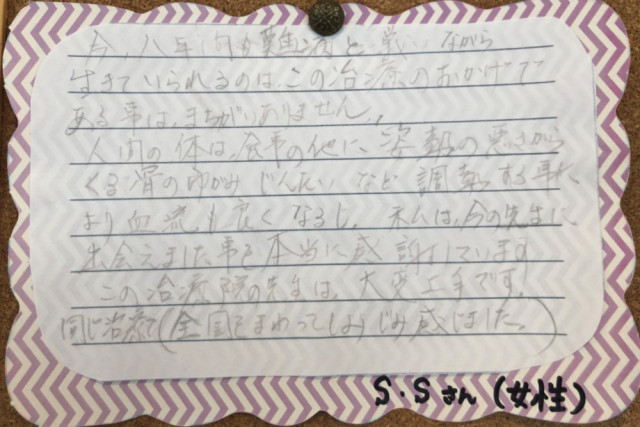 今、八年間難病と戦いながら
生きていられるのは、この治療のおかげで
ある事は、まちがいありません。
人間の体は、食事の他に、姿勢の悪さから
くる骨のゆがみ じんたい など 調整する事に
より 血流も良くなるし、私は、今の先生に
出会えました事を本当に感謝しています
この治療院の先生は、大変上手です。
同じ治療で(全国をまわってしみじみ感じました。)
S・Sさん(女性)